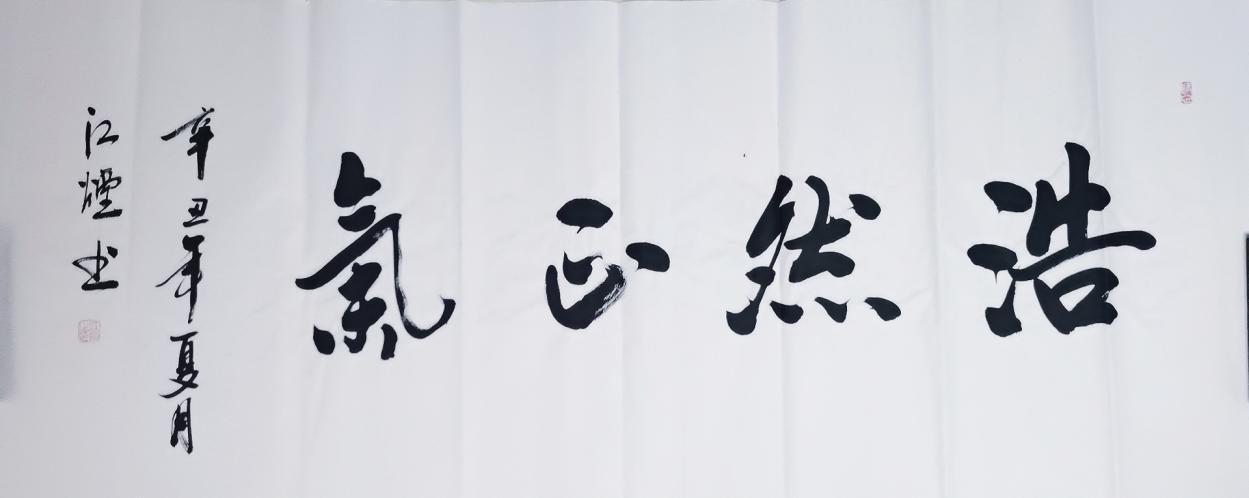 浩然正氣
辛丑年夏月
江煙书